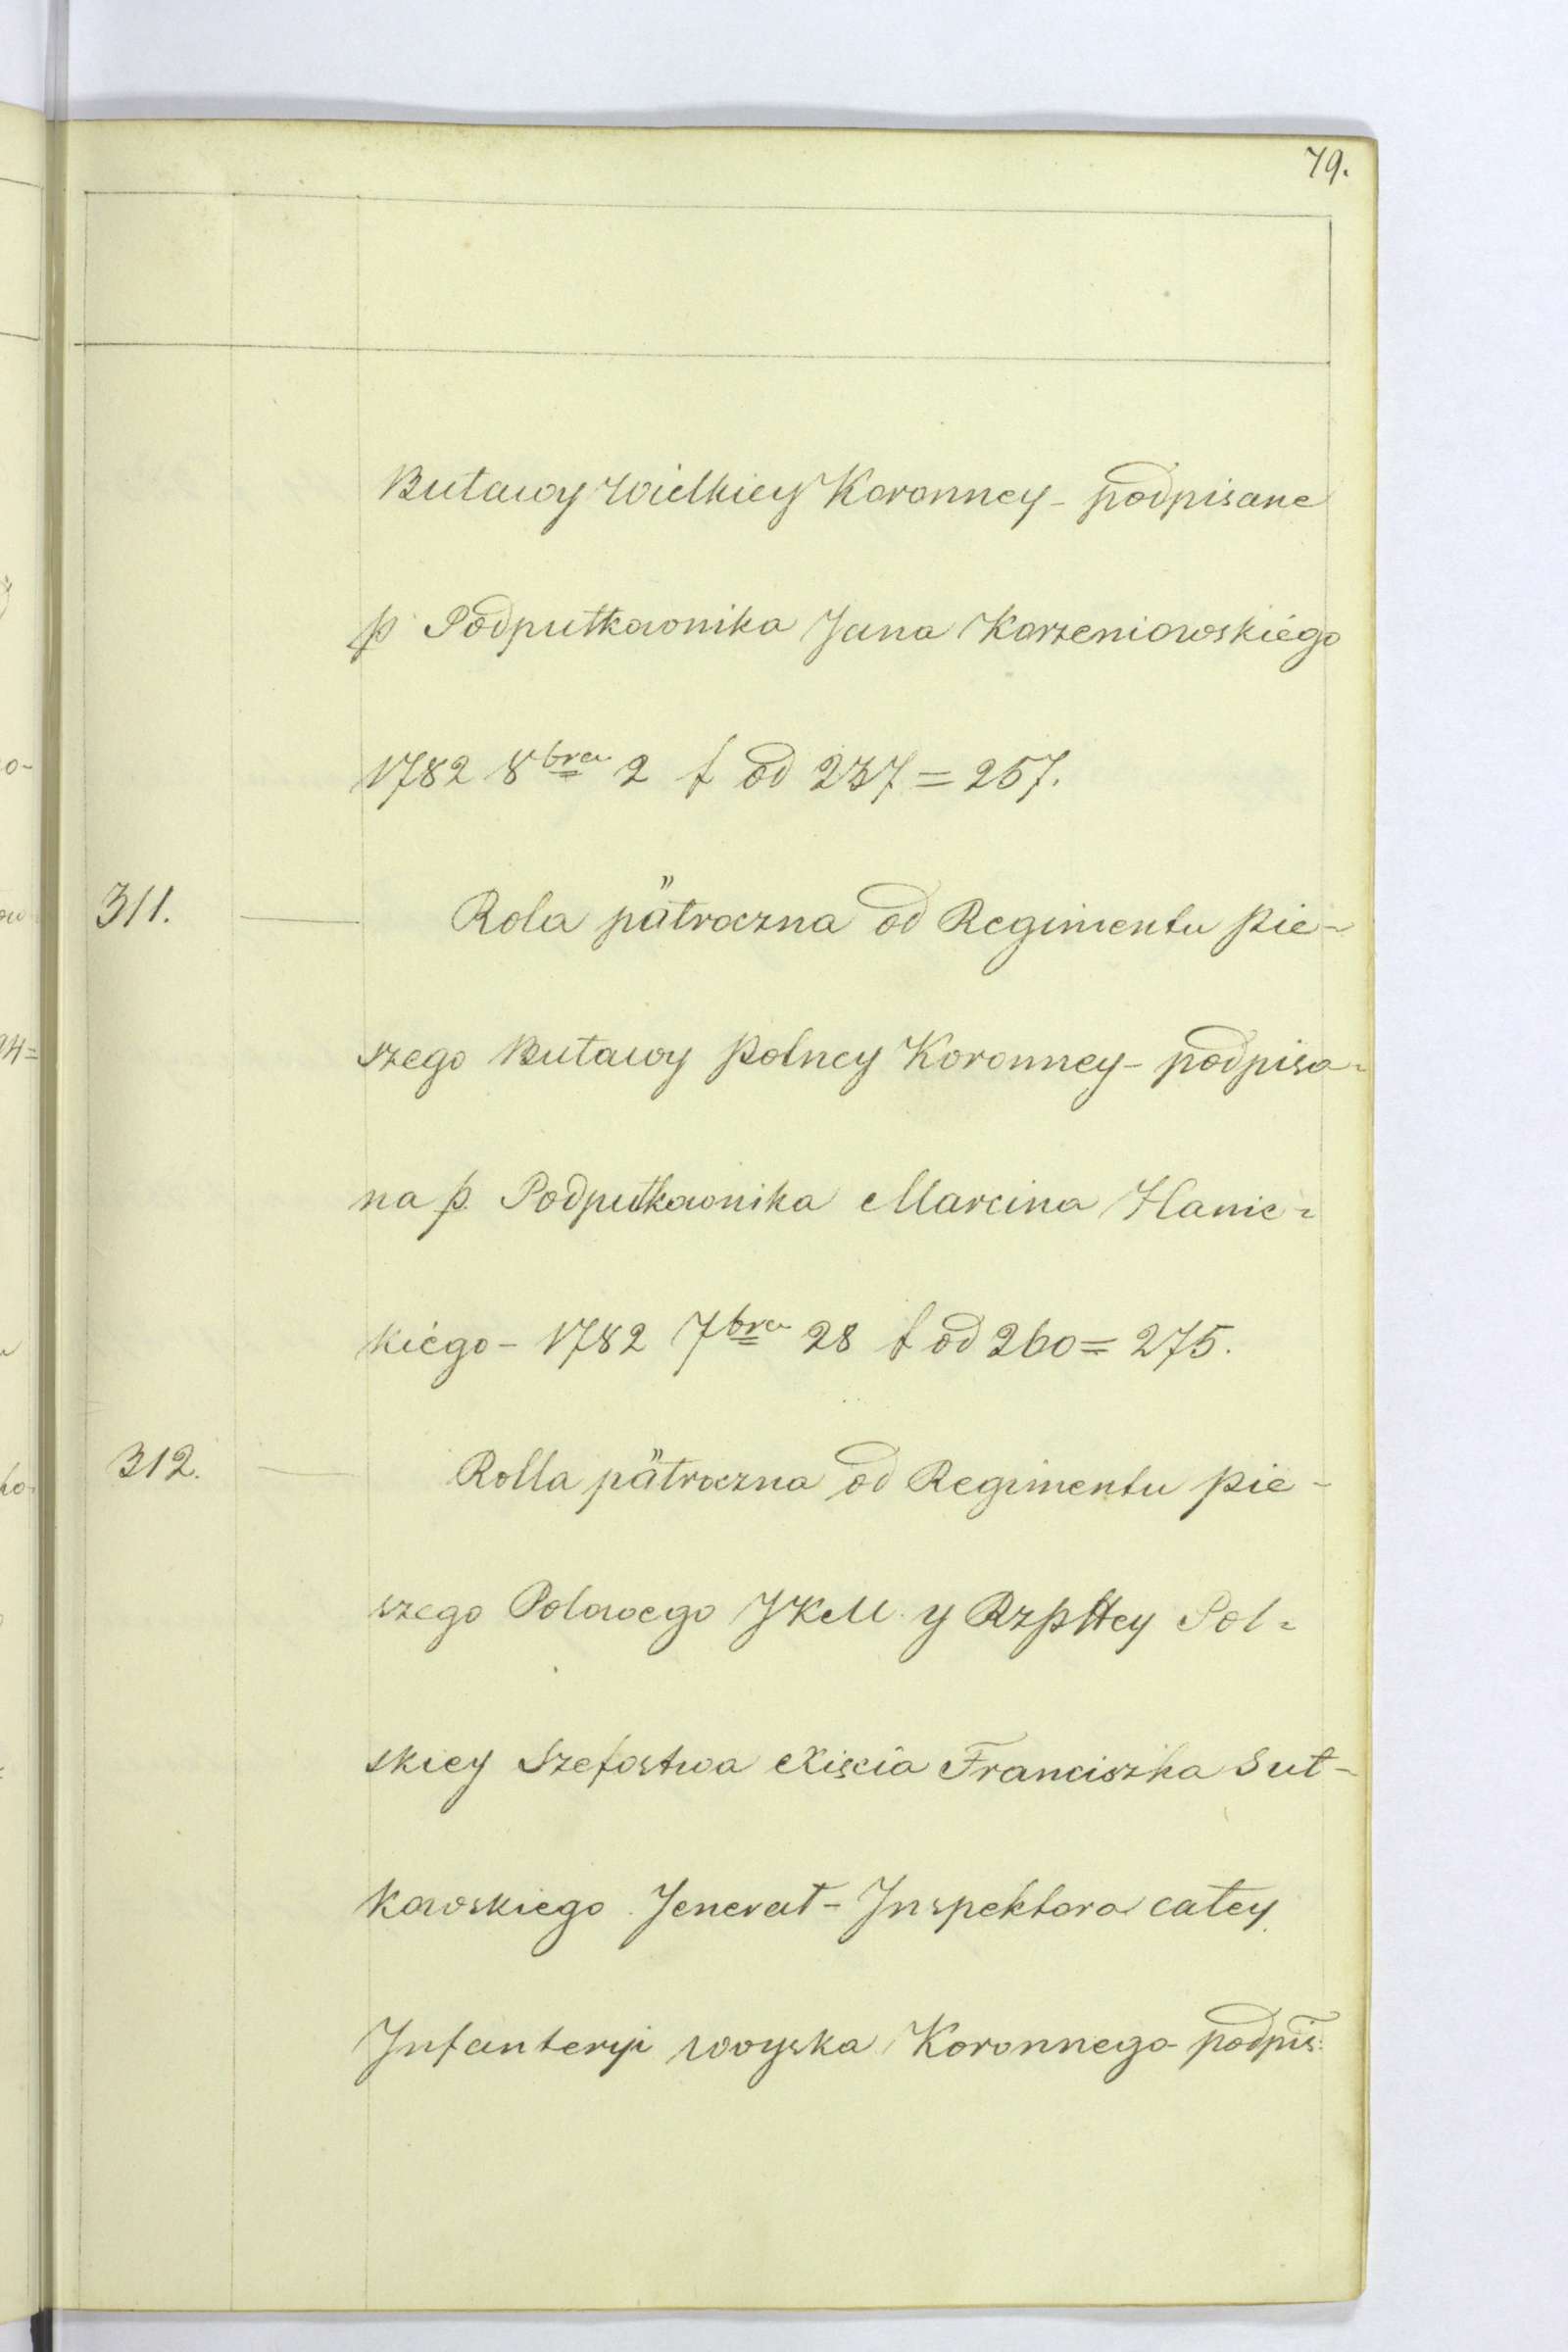 79.
Buławy Wielkiey Koronney - podpisane
p Podpułkownika Jana Korzeniowskiégo
1782 8bra 2 f od 237 = 257.
311. — Rola pätroczna od Regimentu pie-
szego Buławy polney Koronney - podpisa-
na p. Podpułkownika Marcina Hanic-
kiégo - 1782 7bra 28 f od 260 = 275.
312. — Rolla pätroczna od Regimentu pie-
szego Polowego JKM. y Rzpttey Pol-
skiey Szefostwa Xiscia Franciszka Suł-
kowskiego Jenerał-Inspektora całey
Infanteryi woyska Koronnego - podpis: